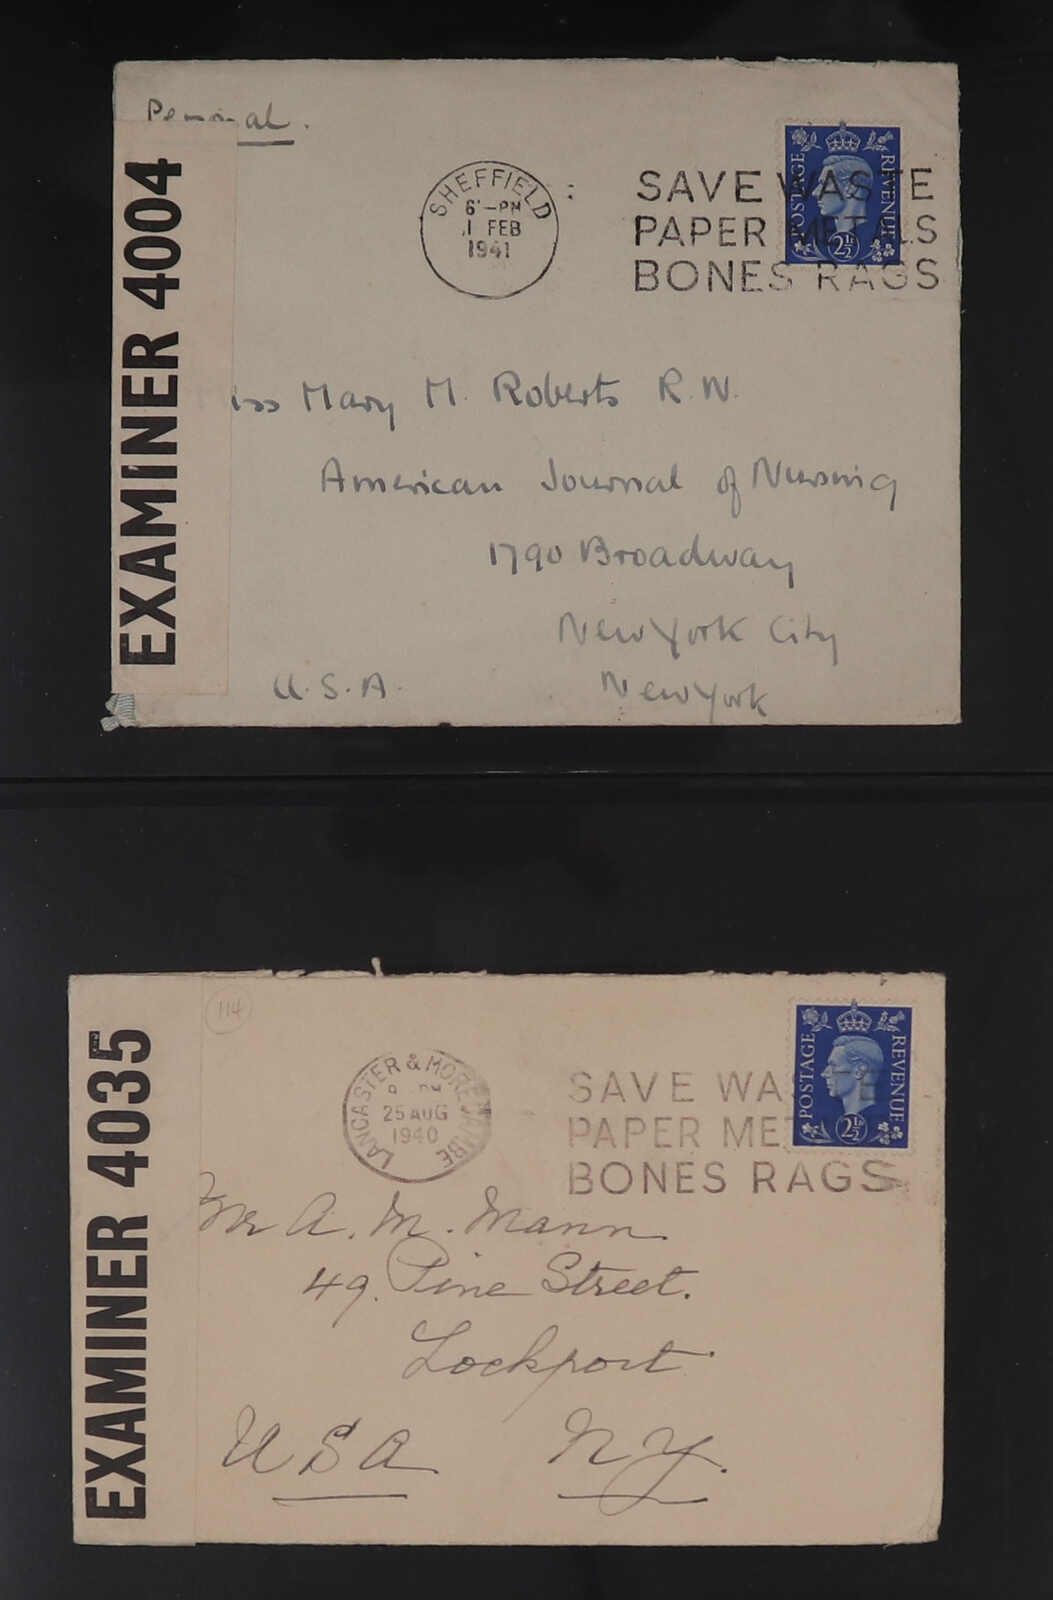 Personal.
EXAMINER 4004
SHEFFIELD
6'-PM
1 FEB
1941
SAVE WASTE
PAPER METALS
BONES RAGS
POSTAGE
REVENUE
2½D
iss Mary M. Roberts R.N.
American Journal of Nursing
1790 Broadway
New York City
U.S.A. New York
EXAMINER 4035
114
LANCASTER & MORECAMBE
PM
25 AUG
1940
SAVE WA
PAPER ME
BONES RAGS
POSTAGE
REVENUE
2½D
A. M. Mann
49. Pine Street.
Lockport
USA N.Y.